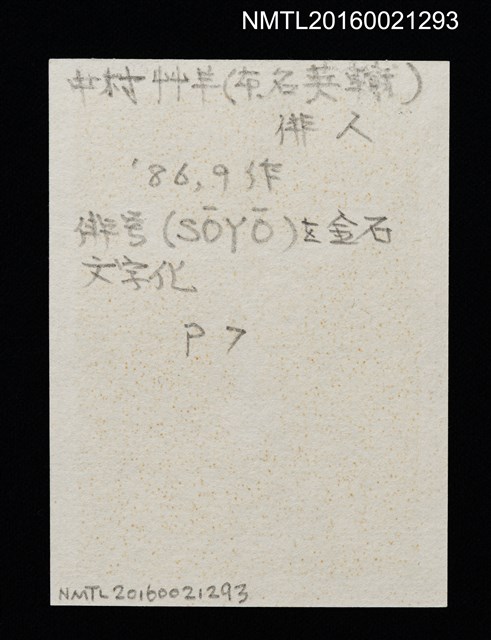 NMTL20160021293
中村艸羊(本名英
俳人
'86,9作
俳号(SŌYŌ)を金石
文字化
P7
NMTL20160021293